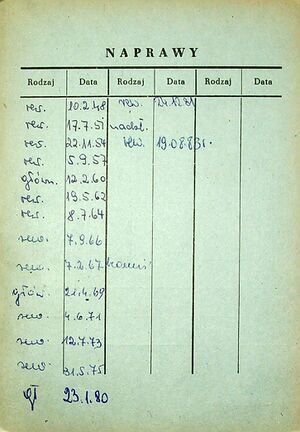 NAPRAWY
Rodzaj Data Rodzaj Data Rodzaj Data
rew. 10.2.48 rew.
rew. 17.7.51
rew. 22.11.54 rew. 19.08.83r.
rew. 5.9.57
główn. 12.2.60
rew. 19.5.62
rew. 8.7.64
rew. 7.9.66
rew. 7.2.67
główn. 21.4.69
rew. 4.6.71
rew. 12.7.73
rew. 31.5.75
gł 23.1.80